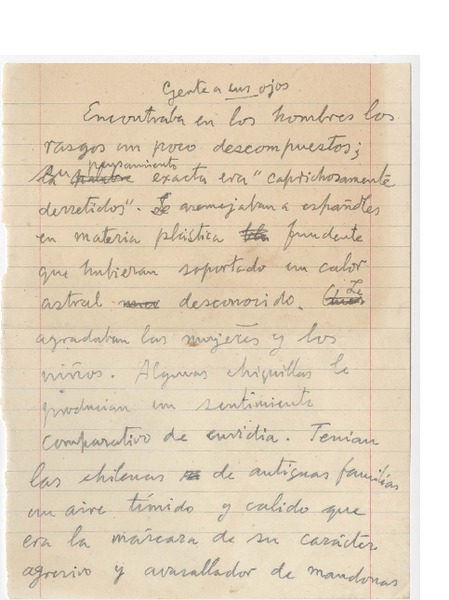 Gente a sus ojos
Encontraba en los hombres los
rasgos un poco descompuestos;
su pensamiento
la palabra exacta era "caprichosamente
derretidos". Se asemejaban a españoles
en materia plástica fundente
que hubieran soportado un calor
astral desconocido. Le
agradaban las mujeres y los
niños. Algunas chiquillas le
producían un sentimiento
comparativo de envidia. Tenían
las chilenas de antiguas familias
un aire tímido y calido que
era la máscara de su carácter
agresivo y avasallador de mandonas